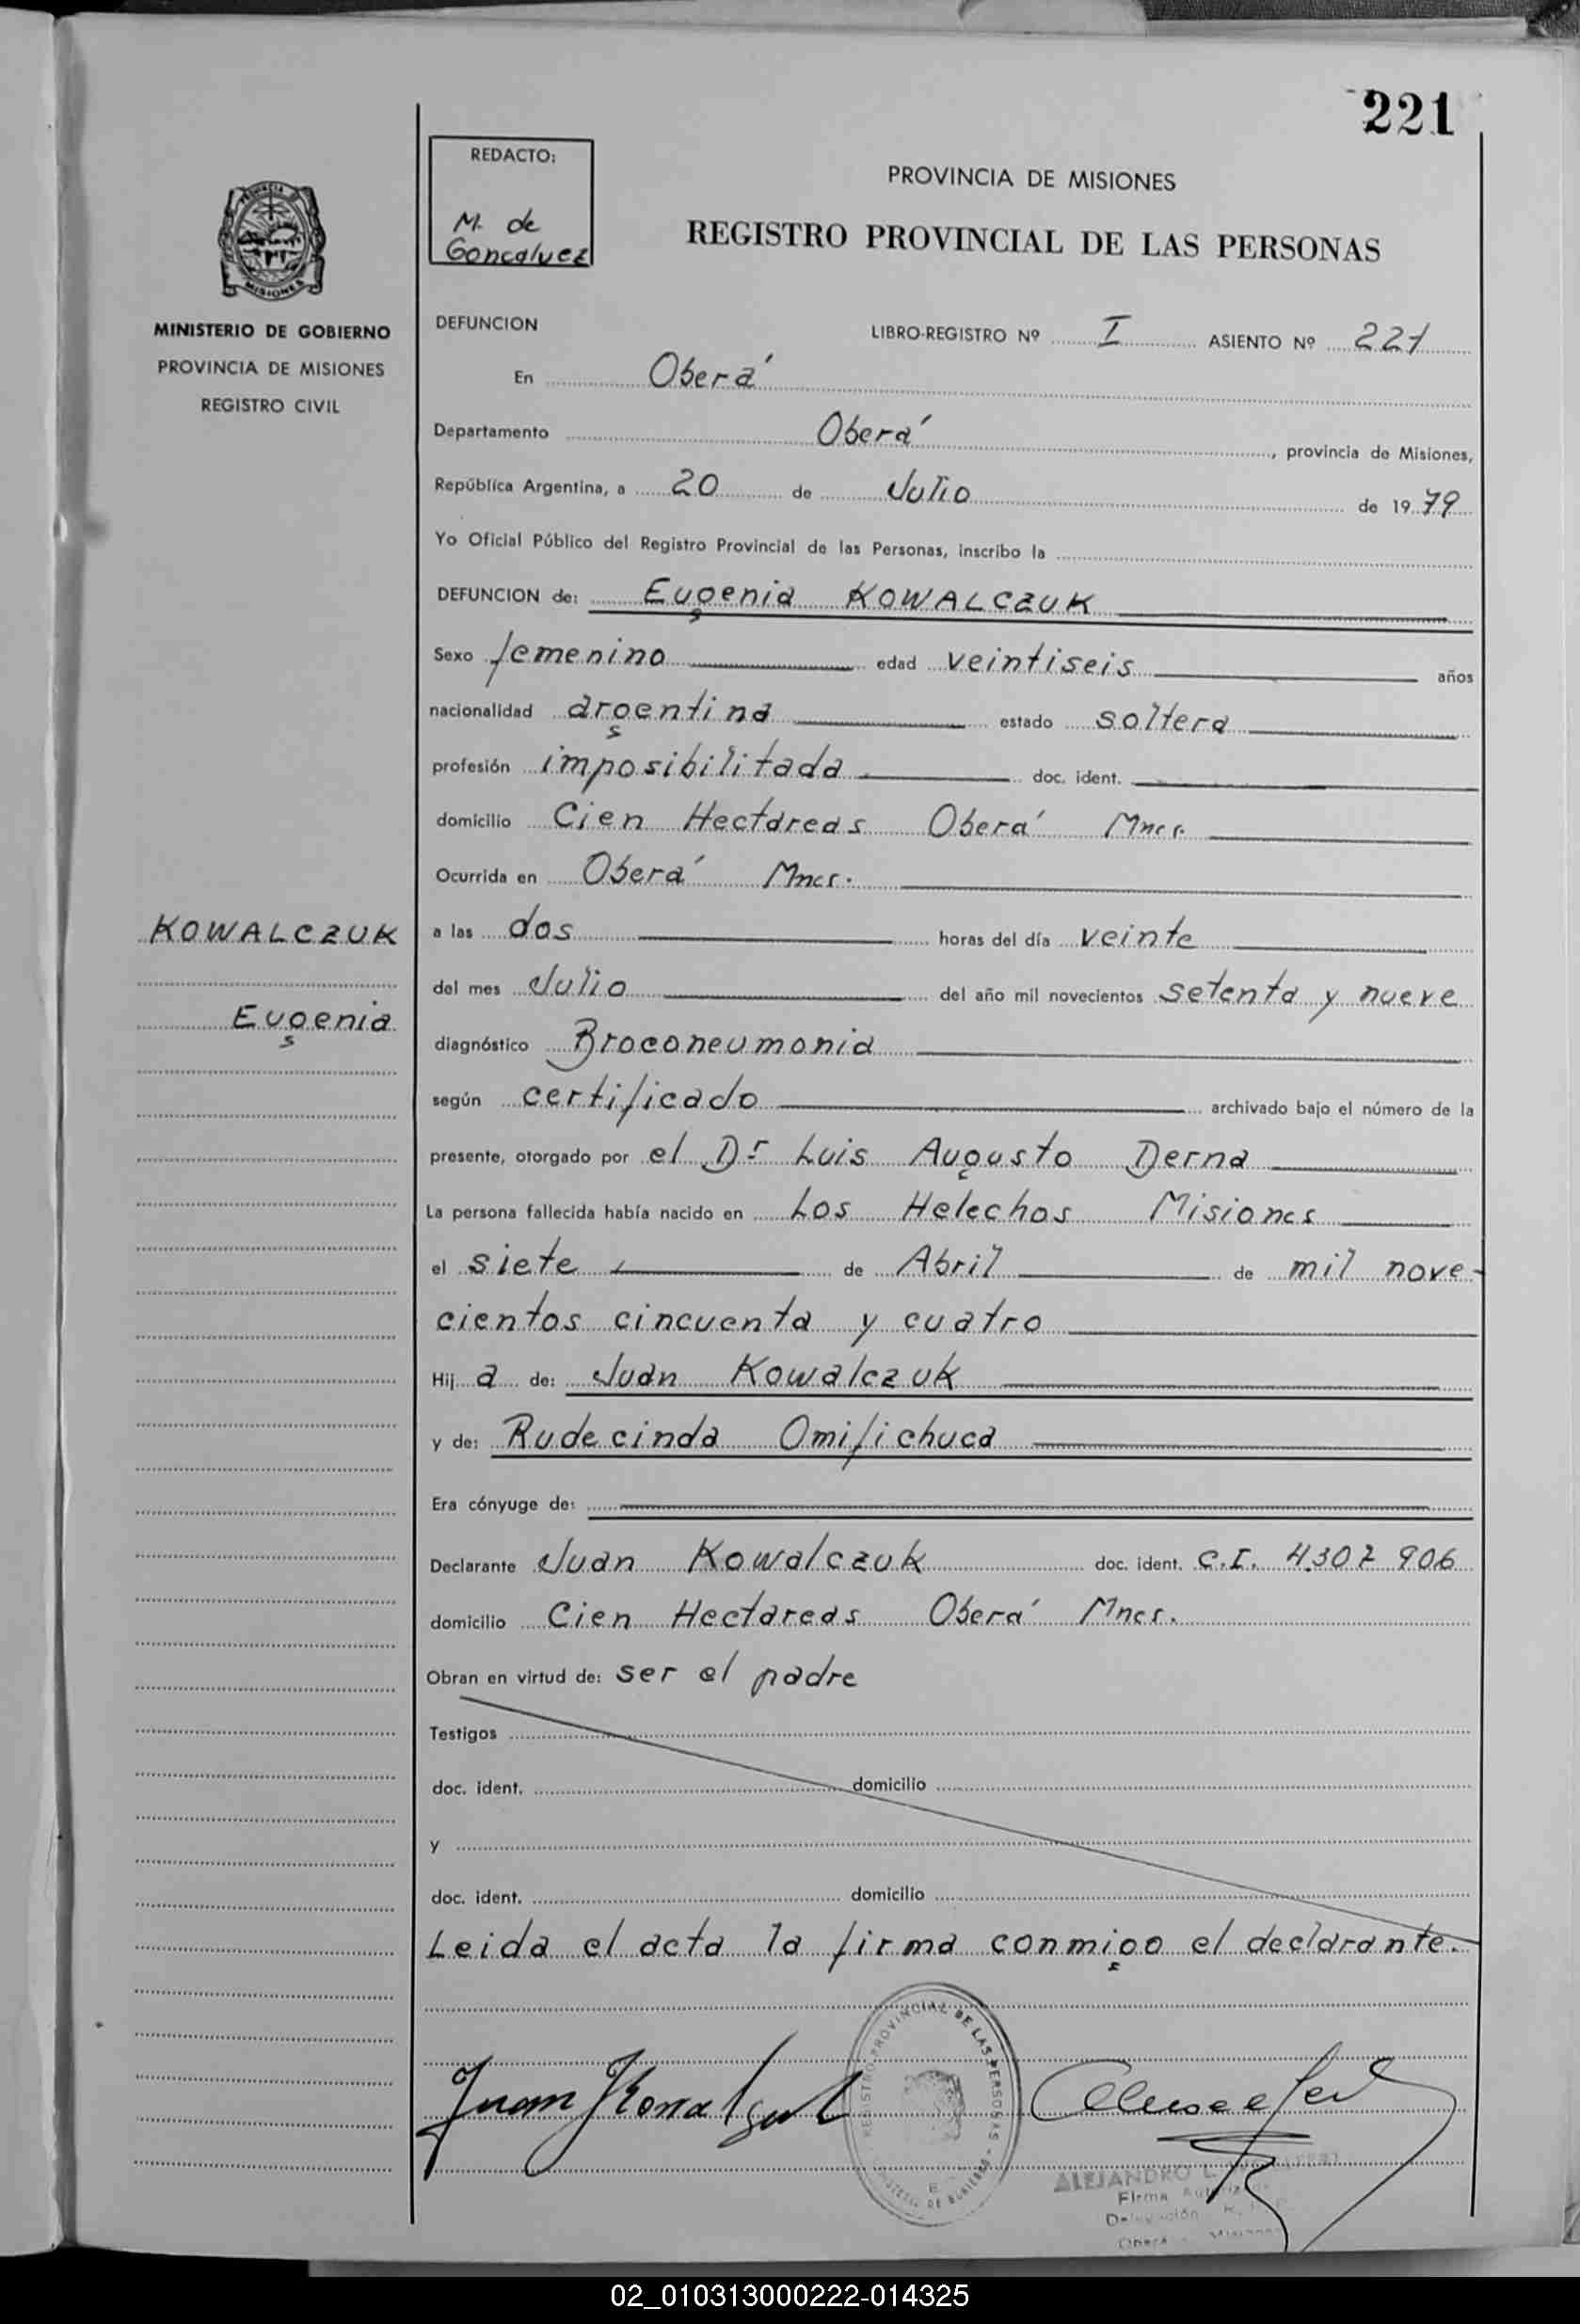 221
REDACTO:
M. de
Goncalvez
PROVINCIA DE MISIONES
REGISTRO PROVINCIAL DE LAS PERSONAS
MINISTERIO DE GOBIERNO
PROVINCIA DE MISIONES
REGISTRO CIVIL
DEFUNCION
LIBRO-REGISTRO Nº I ASIENTO Nº 221
En Oberá
Departamento Oberá, provincia de Misiones,
República Argentina, a 20 de Julio de 1979
Yo Oficial Público del Registro Provincial de las Personas, inscribo la
DEFUNCION de: Eugenia KOWALCZUK
Sexo femenino edad veintiseis años
nacionalidad argentina estado soltera
profesión imposibilitada doc. ident.
domicilio Cien Hectareas Oberá Mnes.
Ocurrida en Oberá Mnes.
KOWALCZUK
Eugenia
a las dos horas del día veinte
del mes Julio del año mil novecientos setenta y nueve
diagnóstico Broconeumonia
según certificado archivado bajo el número de la
presente, otorgado por el Dr Luis Augusto Derna
La persona fallecida había nacido en Los Helechos Misiones
el siete de Abril de mil nove-
cientos cincuenta y cuatro
Hij a de: Juan Kowalczuk
y de: Rudecinda Omifichuca
Era cónyuge de:
Declarante Juan Kowalczuk doc. ident. C.I. 4.307 906
domicilio Cien Hectareas Oberá Mnes.
Obran en virtud de: ser el padre
Testigos
doc. ident. domicilio
y
doc. ident. domicilio
Leida el acta la firma conmigo el declarante.
REGISTRO PROVINCIAL DE LAS PERSONAS
Juan Kowalczuk
ALEJANDRO L.
Firma
Delegación
Oberá
02_010313000222-014325